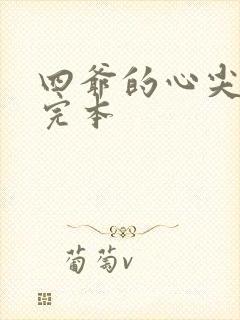 四爷的心尖
完本
葡萄v